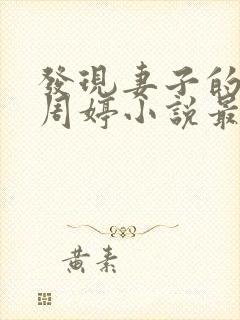 發現妻子的
周婷小說最
黃素